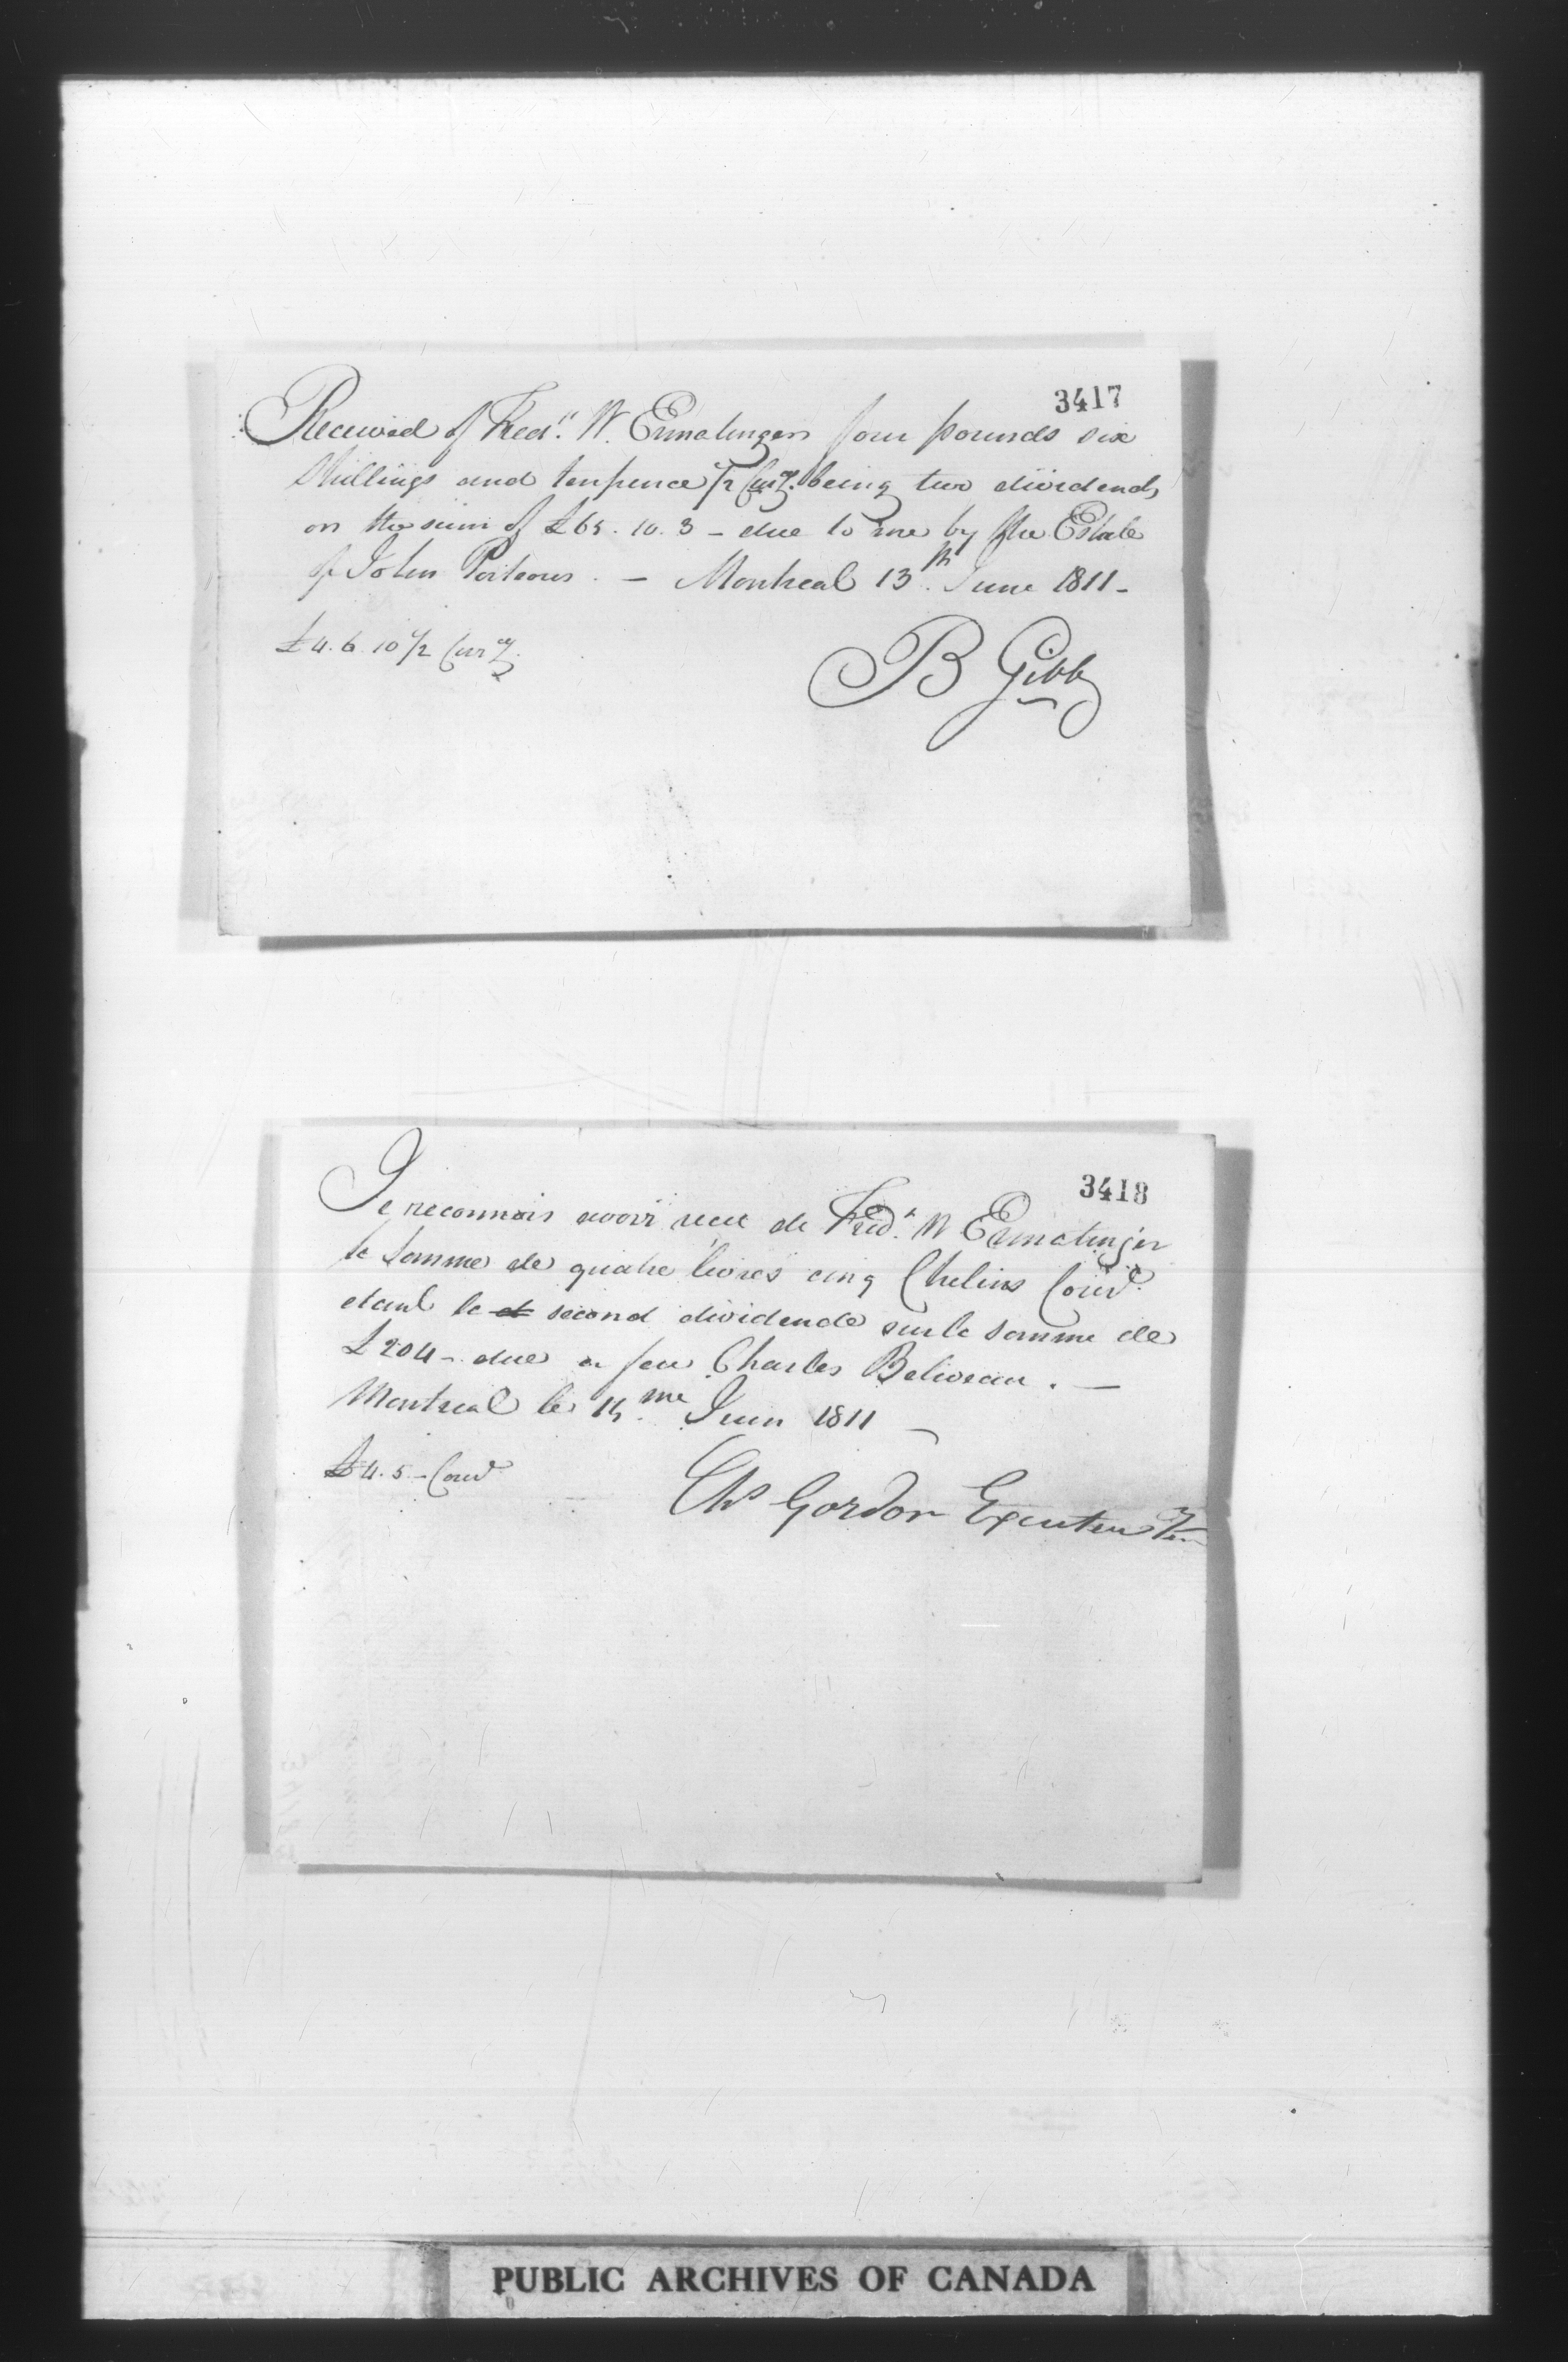 3417
Received of Fredk. W. Ermatinger four pounds six
Shillings and tenpence 1/2 Curcy. being two dividends
on the sum of £65.10.3 - due to me by the Estate
of John Porteous. - Montreal 13th. June 1811 -
£4.6.10 1/2 Curcy.
B Gibb
3418
Je reconnois avoir recu de Fredk. W Ermatinger
la Somme de quatre livres cinq Chelins Court.
etant le second dividende sur la somme de
£204 - due a feu Charles Beliveau. -
Montreal le 15.me Juin 1811 -
£4.5 - Court
Chs Gordon Executeur Tes
PUBLIC ARCHIVES OF CANADA